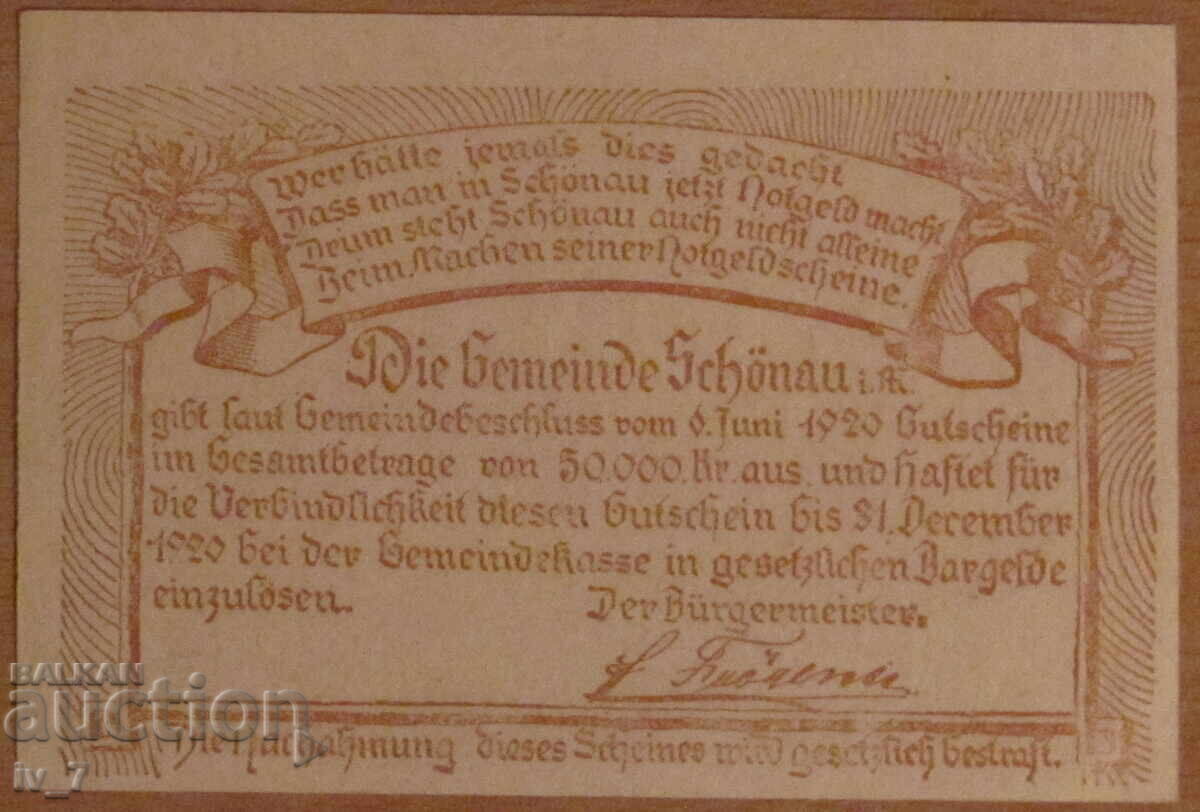 Wer hätte jemals dies gedacht
Dass man in Schönau jetzt Notgeld macht
Drum steht Schönau auch nicht alleine
Beim Machen seiner Notgeldscheine.
Die Gemeinde Schönau i.
gibt laut Gemeindebeschluss vom 6. Juni 1920 Gutscheine
im Gesamtbetrage von 50.000. Kr. aus und haftet für
die Verbindlichkeit diesen Gutschein bis 31. December
1920 bei der Gemeindekasse in gesetzlichen Bargelde
einzulösen.
Der Bürgermeister.
Die Nachahmung dieses Scheines wird gesetzlich bestraft.
BALKAN
auction
iv_7